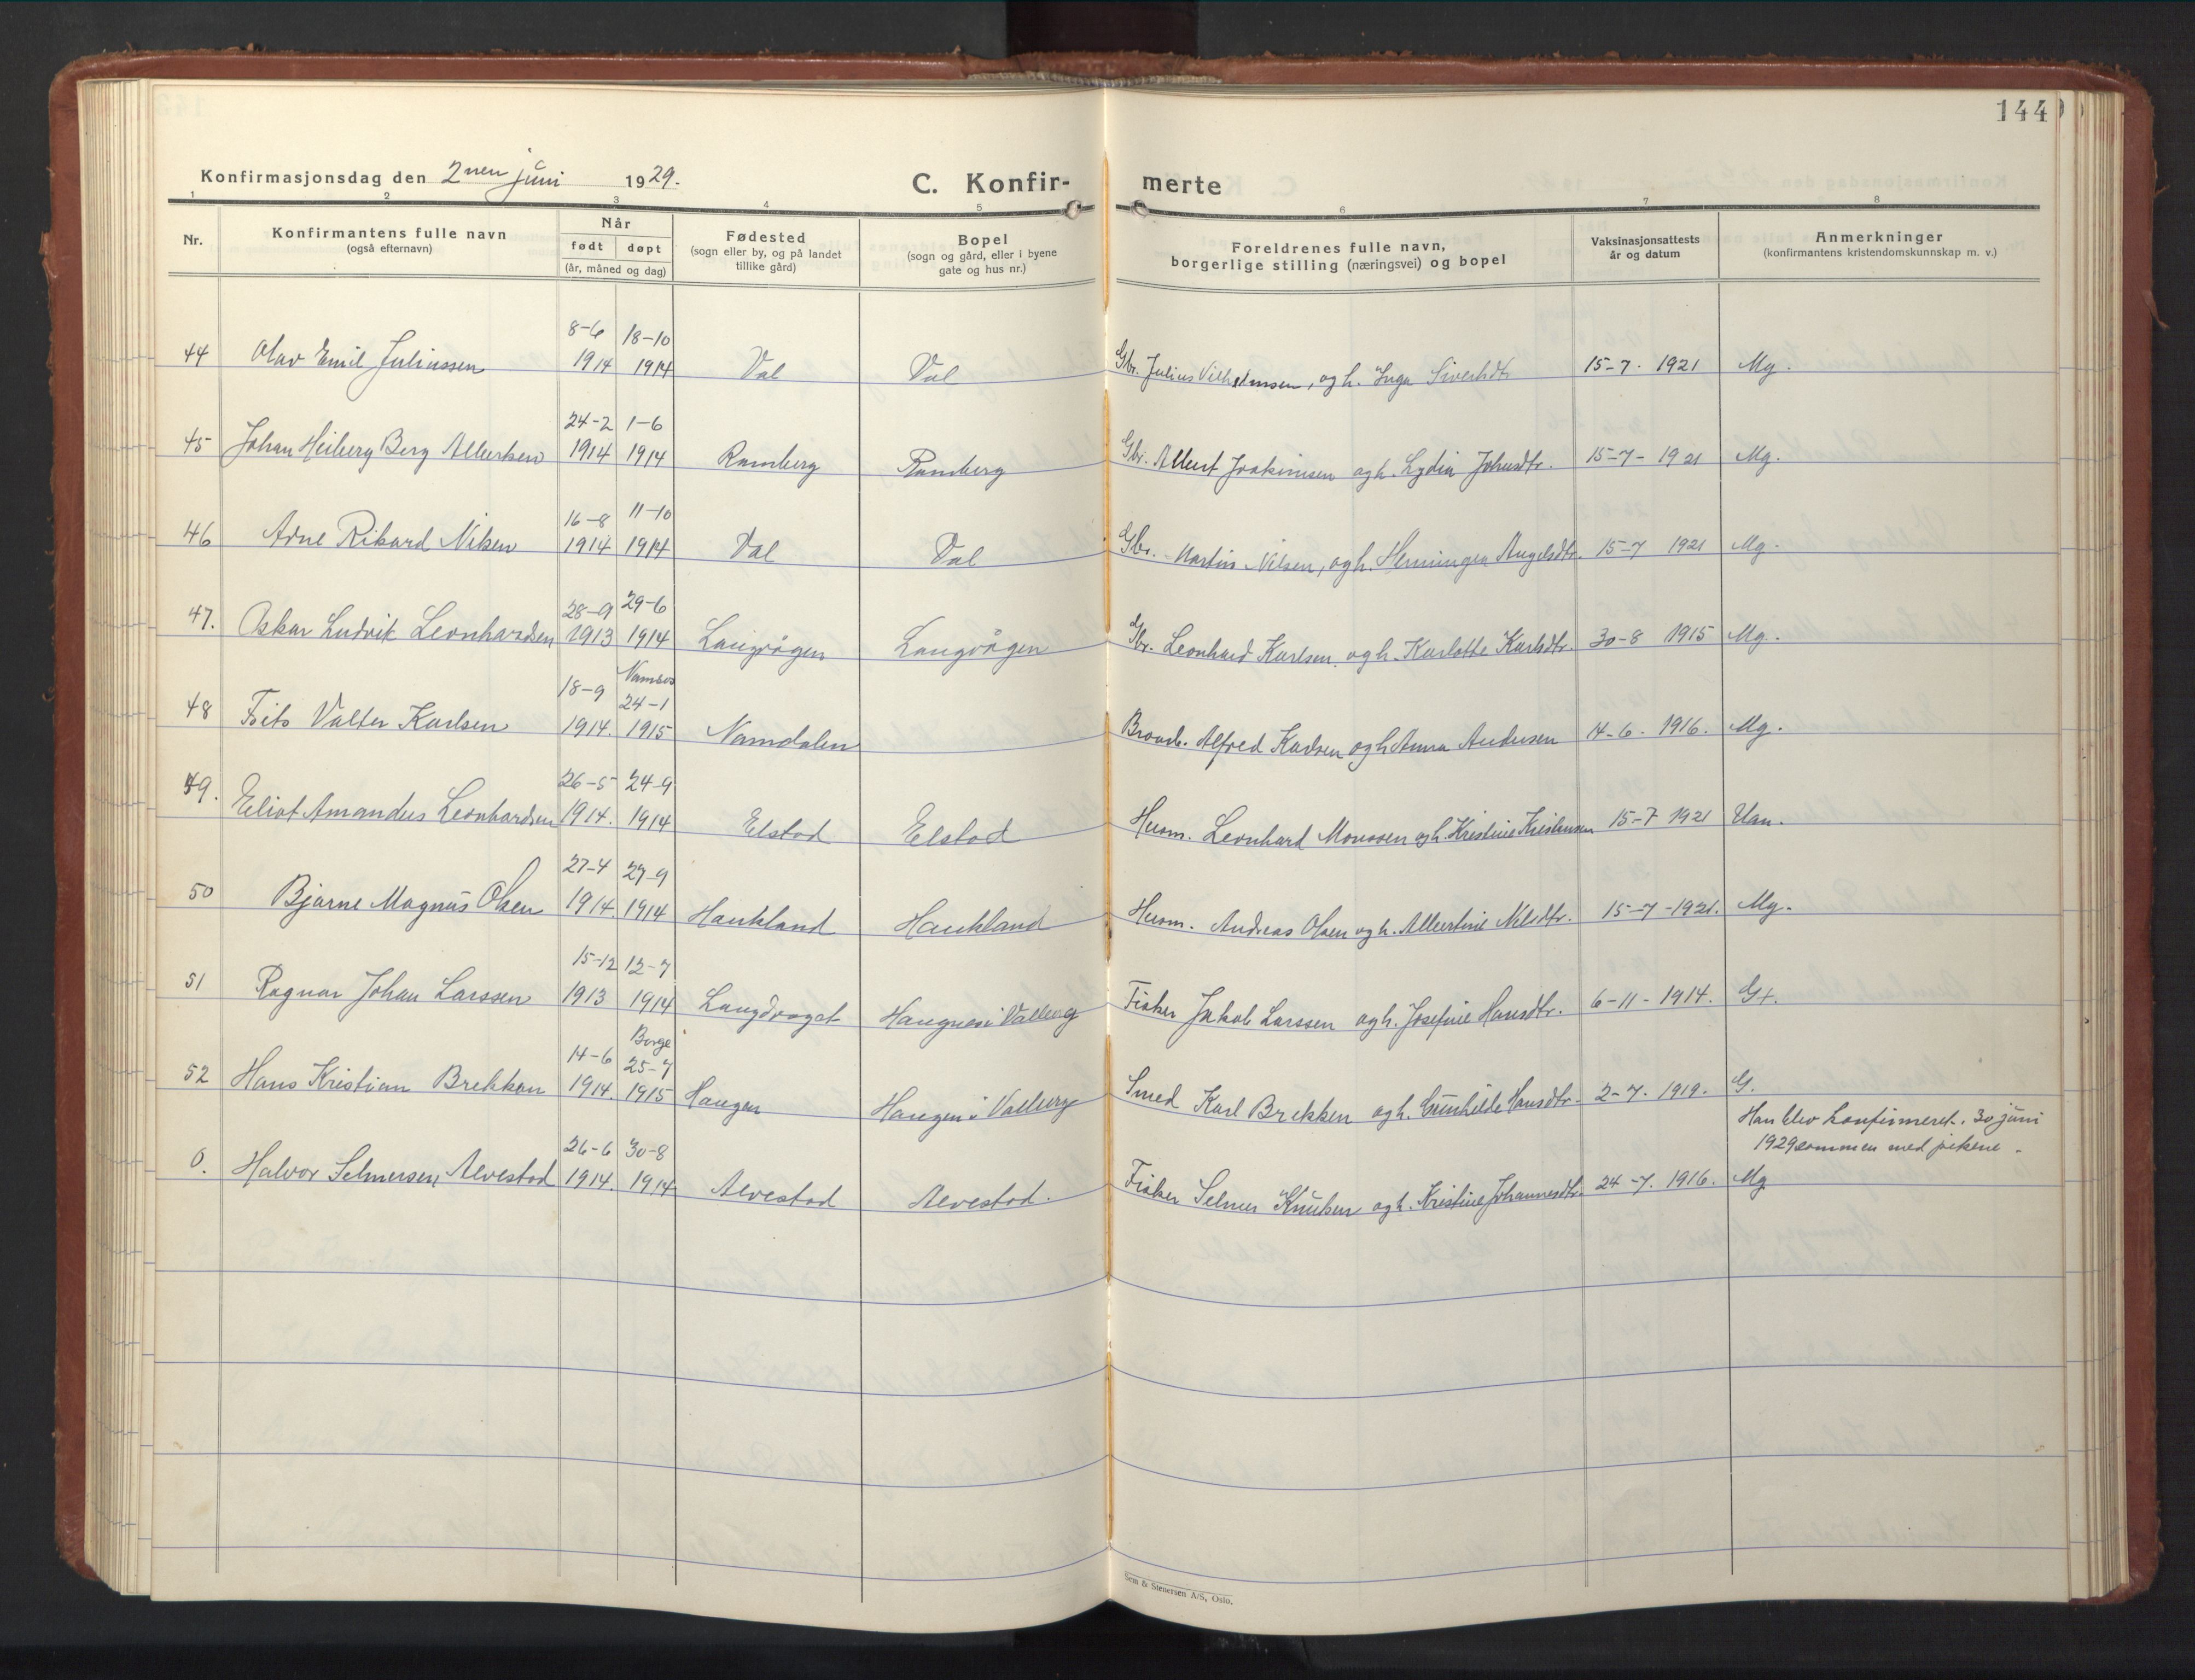 144
Konfirmasjonsdag den 2nen juni 1929.
C. Konfir- merte
1 2 3 4 5 6 7 8
Nr.
Konfirmantens fulle navn
(også efternavn)
Når
født døpt
(år, måned og dag)
Fødested
(sogn eller by, og på landet
tillike gård)
Bopel
(sogn og gård, eller i byene
gate og hus nr.)
Foreldrenes fulle navn,
borgerlige stilling (næringsvei) og bopel
Vaksinasjonsattests
år og datum
Anmerkninger
(konfirmantens kristendomskunnskap m. v.)
8-6 18-10
44 Olav Emil Juliussen 1914 1914 Val Val Gbr. Julius Vilhelmsen, og h. Inga Sivertsdtr 15-7. 1921 Mg.
24-2 1-6
45 Johan Heiberg Berg Albertsen 1914 1914 Ramberg Ramberg Gbr. Albert Joakimsen og h. Lydia Johnsdtr. 15-7- 1921 Mg.
16-8 11-10
46 Arne Rikard Nilsen 1914 1914 Val Val Gbr. Martin Nilsen, og h. Henningea Angelsdtr. 15-7 1921 Mg.
28-9 29-6
47. Oskar Ludvik Leonhardsen 1913 1914 Langvågen Langvågen Gbr. Leonhard Karlsen og h. Karlotte Karlsdtr. 30-8 1915 Mg.
Namsos
18-9 24-1
48 Valter Karlsen 1914. 1915 Namdalen Alfred Karlsen og h Anna Andersen 14-6. 1916. Mg.
26-5 24-9
49. Eliot Amandus Leonhardsen 1914. 1914 Elstad Elstad Husm. Leonhard Monssen og h. Kristine Kristensen 15-7 1921 Uan.
27-4 27-9
50 Bjarne Magnus Olsen 1914. 1914 Haukland Haukland Husm. Andreas Olsen og h. Albertine Nilsdtr. 15-7-1921. Mg.
15-12 12-7
51 Ragnar Johan Larssen 1913 1914 Langdraget Haugnes i Valberg Fisker Jakob Larssen og h. Josefine Hansdtr. 6-11-1914. G+.
Borge
14-6 25-7
52 Hans Kristian Brekken 1914. 1915 Haugen Haugen i Valberg Smed Karl Brekken og h. Gunhilde Hansdtr. 2-7. 1919. G.
Han blev konfirmeret. 30 juni
1929 sammen med pikene.
26-6 30-8
0. Halvor Selmersen, Alvestad 1914. 1914 Alvestad Alvestad. Fisker Selmer Knutsen og h. Kristine Johannesdtr. 24-7. 1916. Mg
Sem & Stenersen A/S, Oslo.